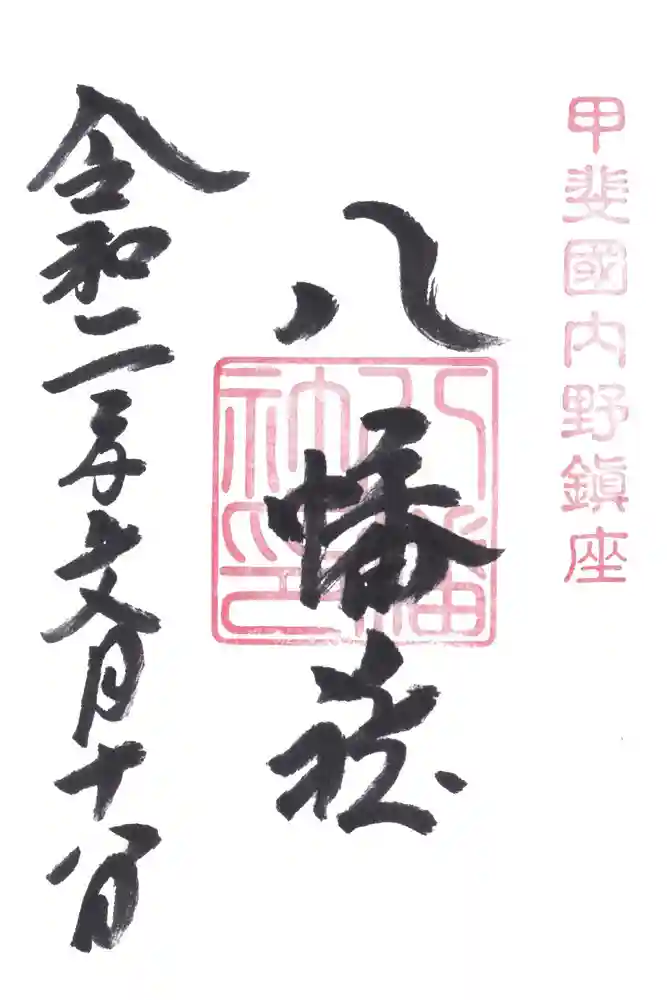 甲斐國内野鎭座
八幡社
八幡
神印
令和二年文月十八日